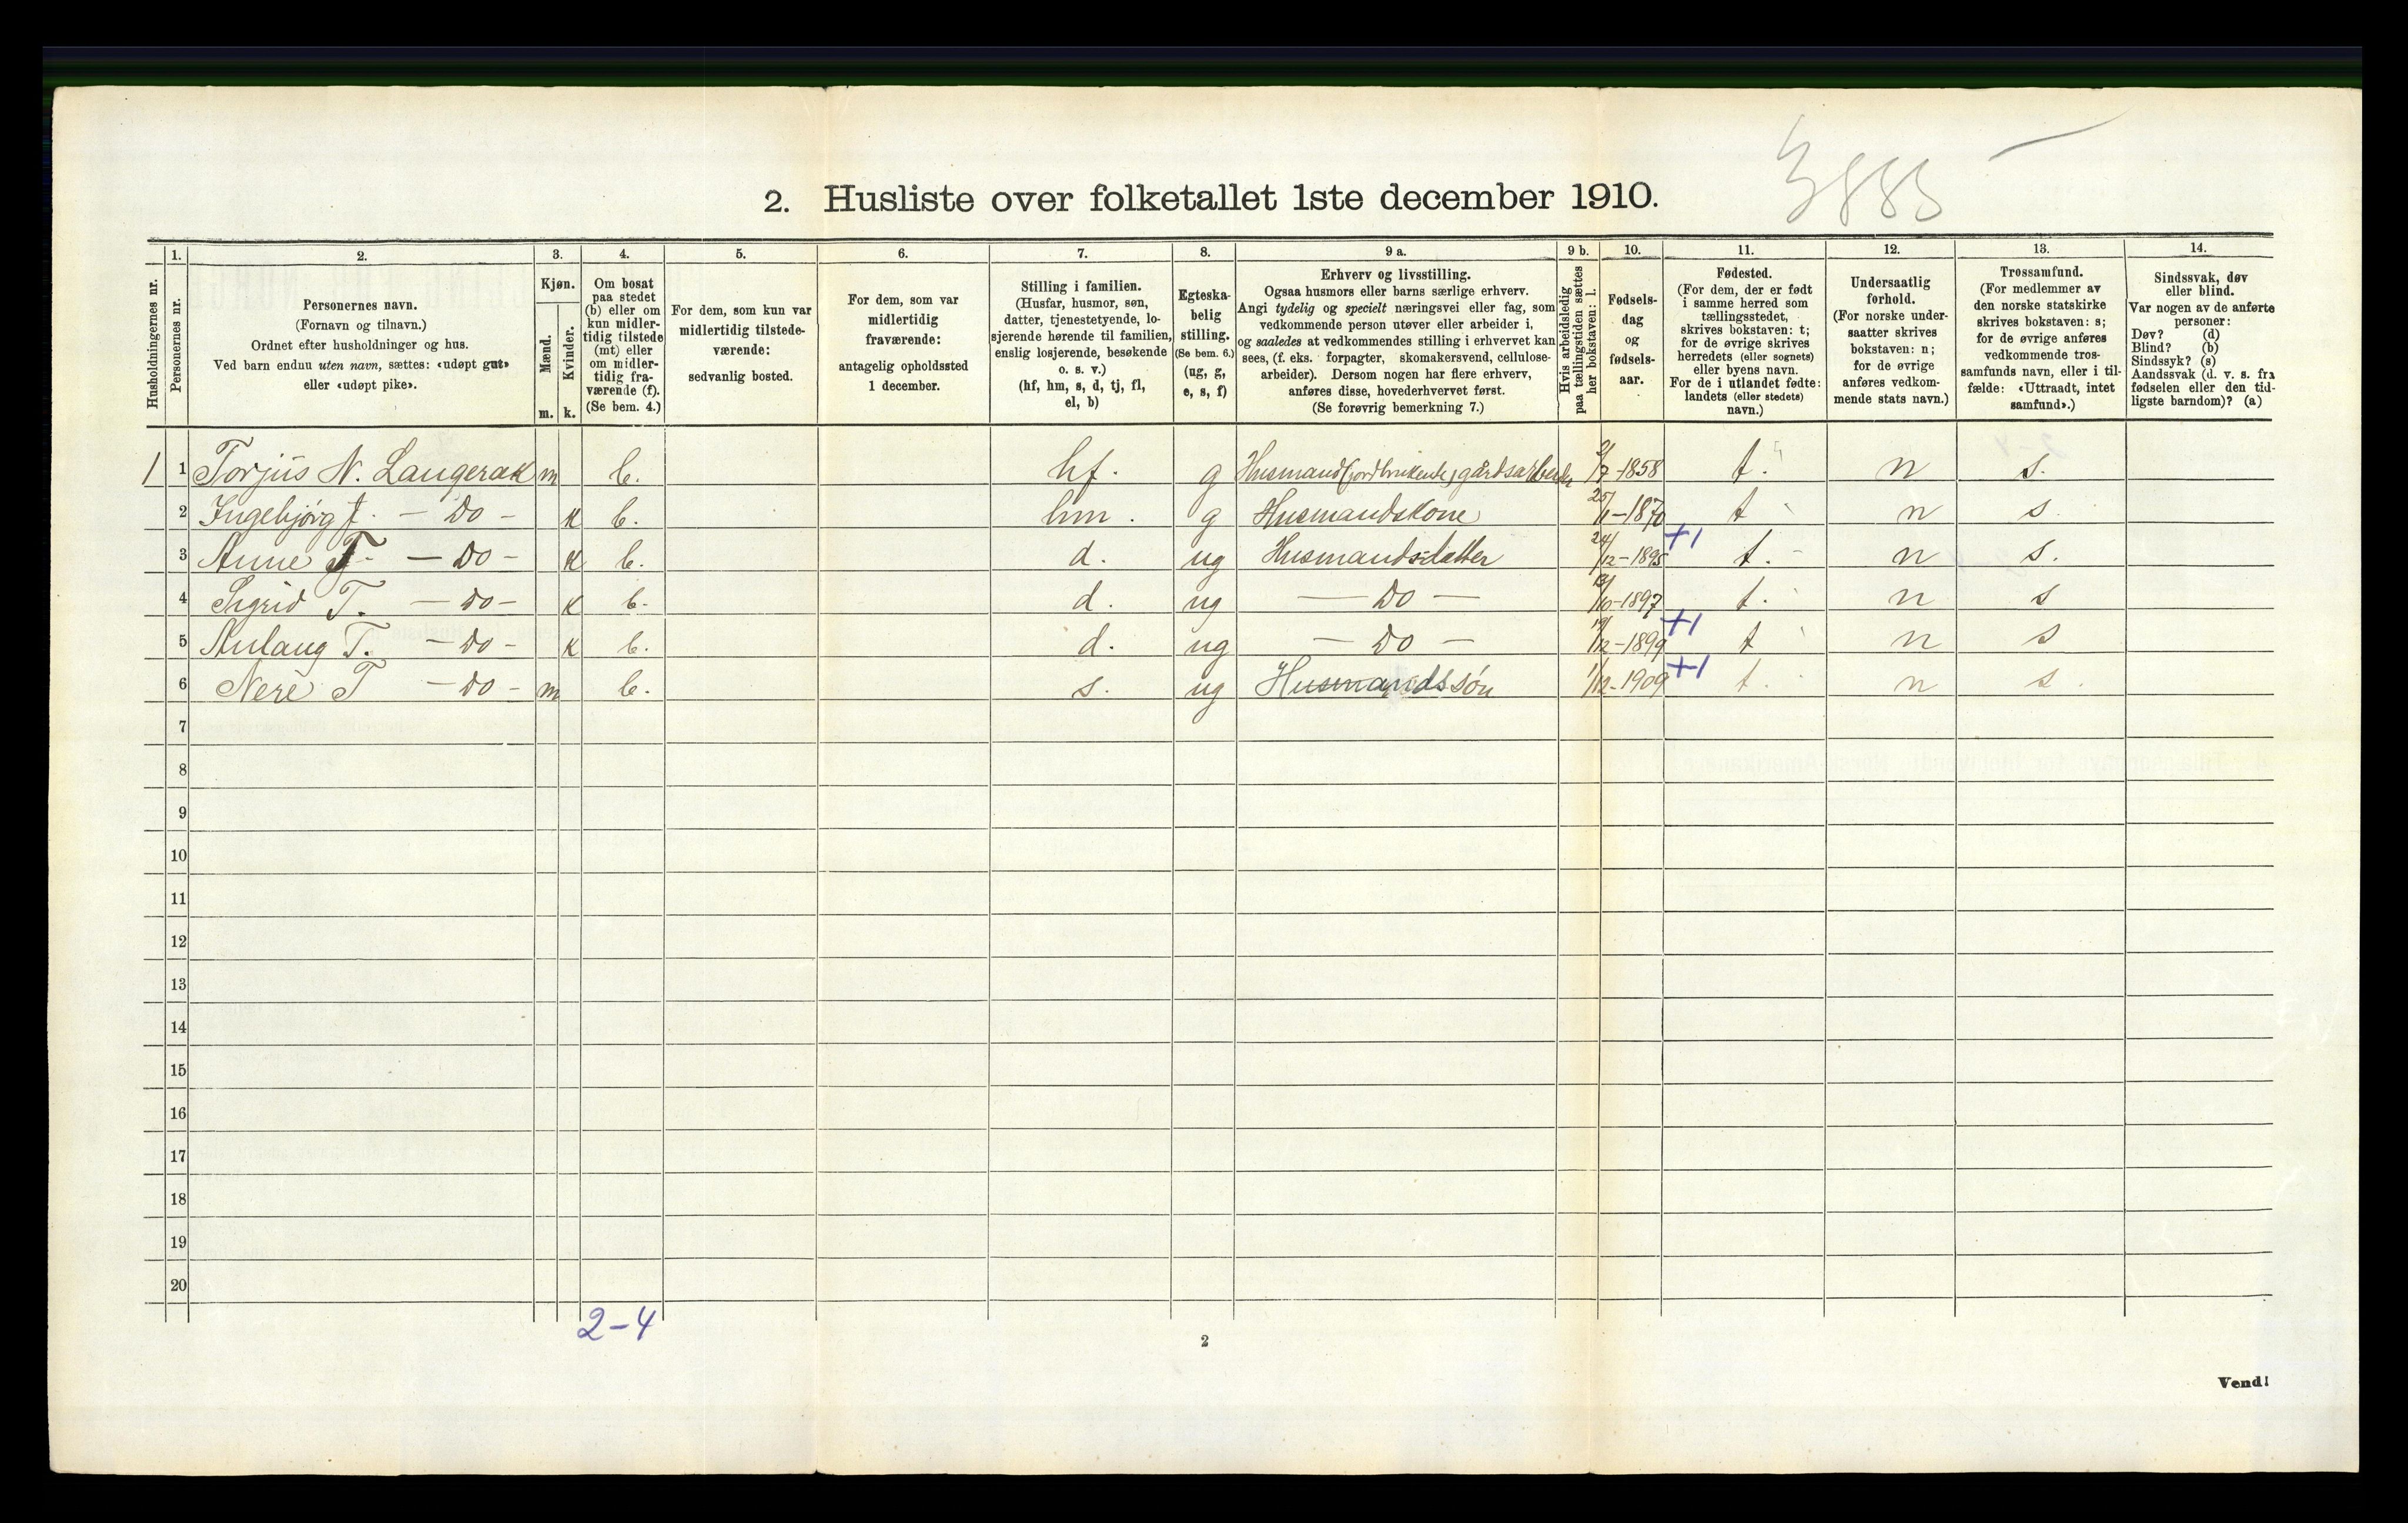 3885 —
2. Husliste over folketallet 1ste december 1910.
1. 2. 3. 4. 5. 6. 7. 8. 9 a. 9 b. 10. 11. 12. 13. 14.
Husholdningernes nr.
Personernes nr.
Personernes navn.
(Fornavn og tilnavn.)
Ordnet efter husholdninger og hus.
Ved barn endnu uten navn, sættes: «udøpt gut»
eller «udøpt pike».
Kjøn.
Mænd.
m.
Kvinder.
k.
Om bosat
paa stedet
(b) eller om
kun midler-
tidig tilstede
(mt) eller
om midler-
tidig fra-
værende (f).
(Se bem. 4.)
For dem, som kun var
midlertidig tilstede-
værende:
sedvanlig bosted.
For dem, som var
midlertidig
fraværende:
antagelig opholdssted
1 december.
Stilling i familien.
(Husfar, husmor, søn,
datter, tjenestetyende, lo-
sjerende hørende til familien,
enslig losjerende, besøkende
o. s. v.)
(hf, hm, s, d, tj, fl,
el, b)
Egteska-
belig
stilling.
(Se bem. 6.)
(ug, g,
e, s, f)
Erhverv og livsstilling.
Ogsaa husmors eller barns særlige erhverv.
Angi tydelig og specielt næringsvei eller fag, som
vedkommende person utøver eller arbeider i,
og saaledes at vedkommendes stilling i erhvervet kan
sees, (f. eks. forpagter, skomakersvend, cellulose-
arbeider). Dersom nogen har flere erhverv,
anføres disse, hovederhvervet først.
(Se forøvrig bemerkning 7.)
Hvis arbeidsledig
paa tællingstiden sættes
her bokstaven: l.
Fødsels-
dag
og
fødsels-
aar.
Fødested.
(For dem, der er født
i samme herred som
tællingsstedet,
skrives bokstaven: t;
for de øvrige skrives
herredets (eller sognets)
eller byens navn.
For de i utlandet fødte:
landets (eller stedets)
navn.)
Undersaatlig
forhold.
(For norske under-
saatter skrives
bokstaven: n;
for de øvrige
anføres vedkom-
mende stats navn.)
Trossamfund.
(For medlemmer av
den norske statskirke
skrives bokstaven: s;
for de øvrige anføres
vedkommende tros-
samfunds navn, eller i til-
fælde: «Uttraadt, intet
samfund».)
Sindssvak, døv
eller blind.
Var nogen av de anførte
personer:
Døv? (d)
Blind? (b)
Sindssyk? (s)
Aandssvak (d. v. s. fra
fødselen eller den tid-
ligste barndom)? (a)
1 1 Torjus N. Langerak m b. hf. g Husmand (jordbrukende) gårdsarbeider /7-1858 t. n s.
2 Ingebjørg J. — Do — k b. hm. g Husmandskone 25/11-1870 t n s.
3 Anne T. — Do — k b. d. ug Husmandsdatter 24/12-1895 +1 t. n s.
4 Sigrid T. — Do — k b. d. ug — Do — 13/10-1897 t. n s
5 Aslaug T. — Do — k b. d. ug — Do — 19/12-1899 +1 t n s
6 Neri T — Do — m b. s. ug Husmandssøn 1/12-1909 +1 t. n s.
7
8
9
10
11
12
13
14
15
16
17
18
19
20
2-4
2
Vend!